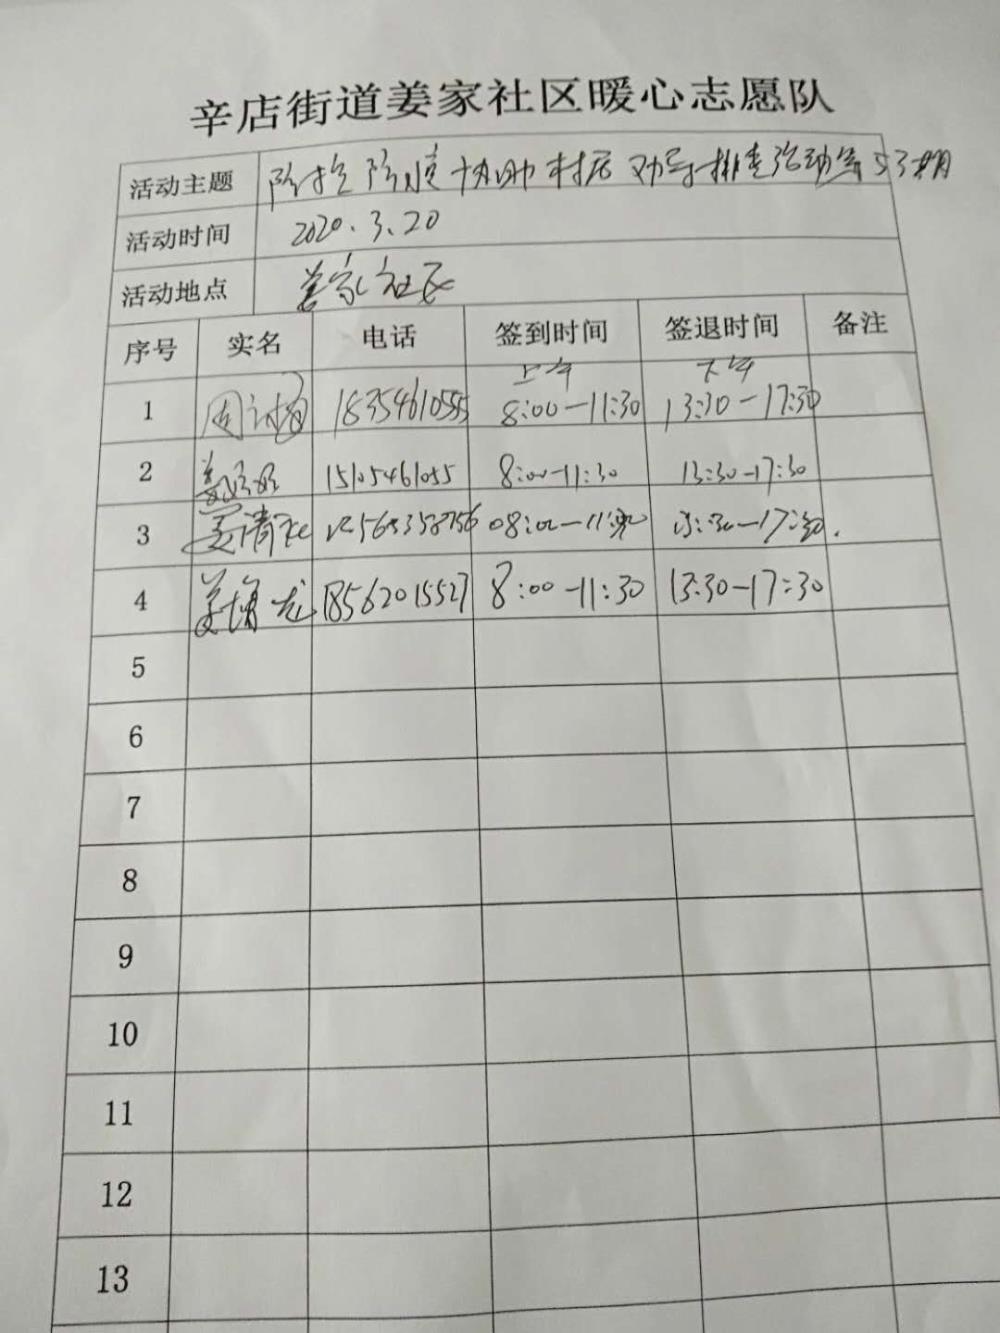 辛店街道姜家社区暖心志愿队
活动主题 防控 协助村居劝导排查活动第53期
活动时间 2020.3.20
活动地点 姜家社区
序号 实名 电话 签到时间 签退时间 备注
上午 下午
1 周 18354610555 8:00-11:30 13:30-17:30
2 姜 15105461055 8:00-11:30 13:30-17:30
3 姜清 08:00-11:30 13:30-17:30.
4 姜 龙 18562015527 8:00-11:30 13:30-17:30
5
6
7
8
9
10
11
12
13